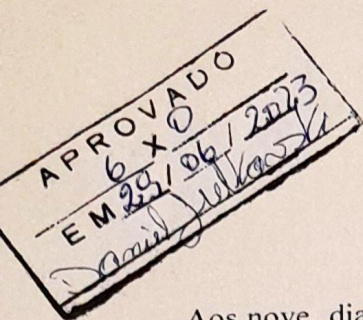 APROVADO
6 X 0
EM 29/06/2023
Daniel
Aos nove dia